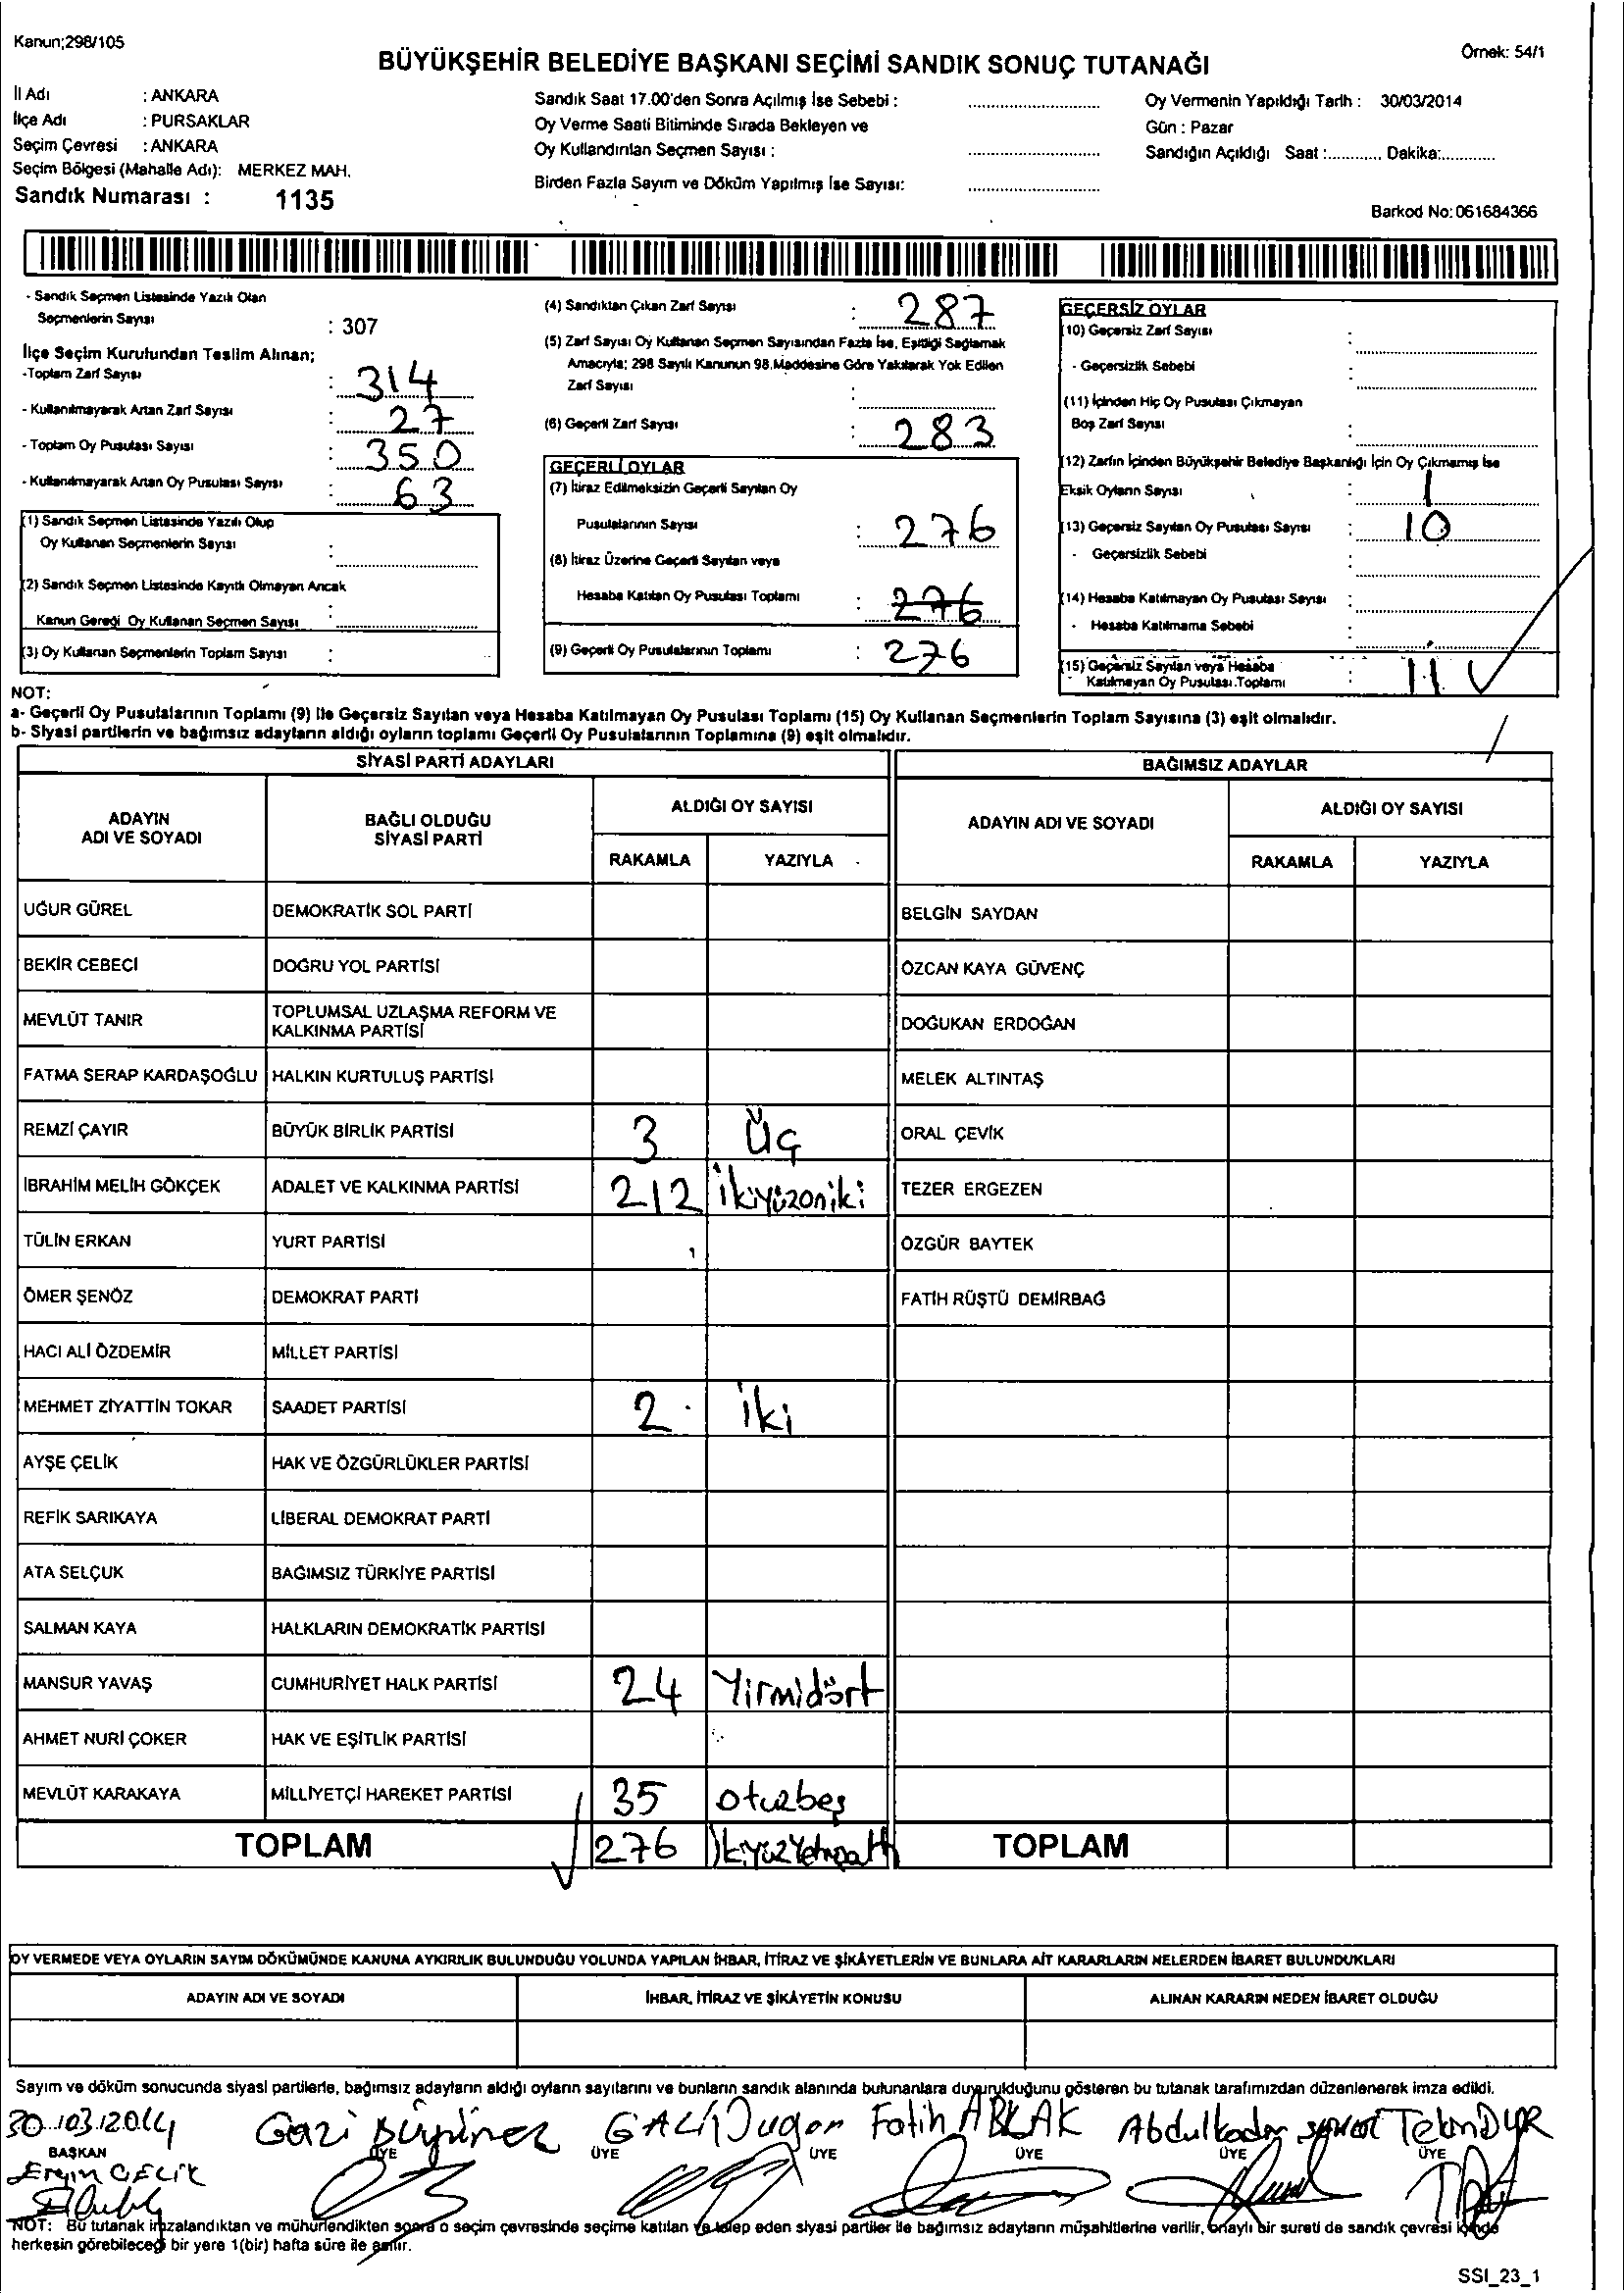 Kanun;298/105
Örnek: 54/1
BÜYÜKŞEHİR BELEDİYE BAŞKANI SEÇİMİ SANDIK SONUÇ TUTANAĞI
İl Adı : ANKARA
İlçe Adı : PURSAKLAR
Seçim Çevresi : ANKARA
Seçim Bölgesi (Mahalle Adı): MERKEZ MAH.
Sandık Numarası : 1135
Sandık Saat 17.00'den Sonra Açılmış İse Sebebi : ..............................
Oy Verme Saati Bitiminde Sırada Bekleyen ve
Oy Kullandırılan Seçmen Sayısı : ..............................
Birden Fazla Sayım ve Döküm Yapılmış İse Sayısı: ..............................
Oy Vermenin Yapıldığı Tarih : 30/03/2014
Gün : Pazar
Sandığın Açıldığı Saat :............ Dakika:............
Barkod No:061684366
- Sandık Seçmen Listesinde Yazılı Olan
Seçmenlerin Sayısı : 307
İlçe Seçim Kurulundan Teslim Alınan;
-Toplam Zarf Sayısı : 314
- Kullanılmayarak Artan Zarf Sayısı : 27
- Toplam Oy Pusulası Sayısı : 350
- Kullanılmayarak Artan Oy Pusulası Sayısı : 63
(1) Sandık Seçmen Listesinde Yazılı Olup
Oy Kullanan Seçmenlerin Sayısı :
(2) Sandık Seçmen Listesinde Kayıtlı Olmayan Ancak
Kanun Gereği Oy Kullanan Seçmen Sayısı :
(3) Oy Kullanan Seçmenlerin Toplam Sayısı :
(4) Sandıktan Çıkan Zarf Sayısı : 287
(5) Zarf Sayısı Oy Kullanan Seçmen Sayısından Fazla İse, Eşitliği Sağlamak
Amacıyla; 298 Sayılı Kanunun 98.Maddesine Göre Yakılarak Yok Edilen
Zarf Sayısı :
(6) Geçerli Zarf Sayısı : 283
GEÇERLİ OYLAR
(7) İtiraz Edilmeksizin Geçerli Sayılan Oy
Pusulalarının Sayısı : 276
(8) İtiraz Üzerine Geçerli Sayılan veya
Hesaba Katılan Oy Pusulası Toplamı : 276
(9) Geçerli Oy Pusulalarının Toplamı : 276
GEÇERSİZ OYLAR
(10) Geçersiz Zarf Sayısı :
- Geçersizlik Sebebi :
(11) İçinden Hiç Oy Pusulası Çıkmayan
Boş Zarf Sayısı :
(12) Zarfın İçinden Büyükşehir Belediye Başkanlığı İçin Oy Çıkmamış İse
Eksik Oyların Sayısı : 1
(13) Geçersiz Sayılan Oy Pusulası Sayısı : 10
- Geçersizlik Sebebi :
(14) Hesaba Katılmayan Oy Pusulası Sayısı :
- Hesaba Katılmama Sebebi :
(15) Geçersiz Sayılan veya Hesaba
Katılmayan Oy Pusulası Toplamı : 11
NOT:
a- Geçerli Oy Pusulalarının Toplamı (9) ile Geçersiz Sayılan veya Hesaba Katılmayan Oy Pusulası Toplamı (15) Oy Kullanan Seçmenlerin Toplam Sayısına (3) eşit olmalıdır.
b- Siyasi partilerin ve bağımsız adayların aldığı oyların toplamı Geçerli Oy Pusulalarının Toplamına (9) eşit olmalıdır.
SİYASİ PARTİ ADAYLARI BAĞIMSIZ ADAYLAR
ADAYIN ADI VE SOYADI BAĞLI OLDUĞU SİYASİ PARTİ ALDIĞI OY SAYISI ADAYIN ADI VE SOYADI ALDIĞI OY SAYISI
RAKAMLA YAZIYLA RAKAMLA YAZIYLA
UĞUR GÜREL DEMOKRATİK SOL PARTİ BELGİN SAYDAN
BEKİR CEBECİ DOĞRU YOL PARTİSİ ÖZCAN KAYA GÜVENÇ
MEVLÜT TANIR TOPLUMSAL UZLAŞMA REFORM VE KALKINMA PARTİSİ DOĞUKAN ERDOĞAN
FATMA SERAP KARDAŞOĞLU HALKIN KURTULUŞ PARTİSİ MELEK ALTINTAŞ
REMZİ ÇAYIR BÜYÜK BİRLİK PARTİSİ 3 Üç ORAL ÇEVİK
İBRAHİM MELİH GÖKÇEK ADALET VE KALKINMA PARTİSİ 212 ikiyüzoniki TEZER ERGEZEN
TÜLİN ERKAN YURT PARTİSİ ÖZGÜR BAYTEK
ÖMER ŞENÖZ DEMOKRAT PARTİ FATİH RÜŞTÜ DEMİRBAĞ
HACI ALİ ÖZDEMİR MİLLET PARTİSİ
MEHMET ZİYATTİN TOKAR SAADET PARTİSİ 2 iki
AYŞE ÇELİK HAK VE ÖZGÜRLÜKLER PARTİSİ
REFİK SARIKAYA LİBERAL DEMOKRAT PARTİ
ATA SELÇUK BAĞIMSIZ TÜRKİYE PARTİSİ
SALMAN KAYA HALKLARIN DEMOKRATİK PARTİSİ
MANSUR YAVAŞ CUMHURİYET HALK PARTİSİ 24 Yirmidört
AHMET NURİ ÇOKER HAK VE EŞİTLİK PARTİSİ
MEVLÜT KARAKAYA MİLLİYETÇİ HAREKET PARTİSİ 35 otuzbeş
TOPLAM 276 TOPLAM
OY VERMEDE VEYA OYLARIN SAYIM DÖKÜMÜNDE KANUNA AYKIRILIK BULUNDUĞU YOLUNDA YAPILAN İHBAR, İTİRAZ VE ŞİKÂYETLERİN VE BUNLARA AİT KARARLARIN NELERDEN İBARET BULUNDUKLARI
ADAYIN ADI VE SOYADI İHBAR, İTİRAZ VE ŞİKÂYETİN KONUSU ALINAN KARARIN NEDEN İBARET OLDUĞU
Sayım ve döküm sonucunda siyasi partilerle, bağımsız adayların aldığı oyların sayılarını ve bunların sandık alanında bulunanlara duyurulduğunu gösteren bu tutanak tarafımızdan düzenlenerek imza edildi.
30/03/2014 Gazi Fatih ABLAK
BAŞKAN ÜYE ÜYE ÜYE ÜYE ÜYE ÜYE
Ergin ÇELİK
NOT: Bu tutanak imzalandıktan ve mühürlendikten sonra o seçim çevresinde seçime katılan ve talep eden siyasi partiler ile bağımsız adayların müşahitlerine verilir, onaylı bir sureti de sandık çevresi içinde
herkesin görebileceği bir yere 1(bir) hafta süre ile asılır.
SSI_23_1